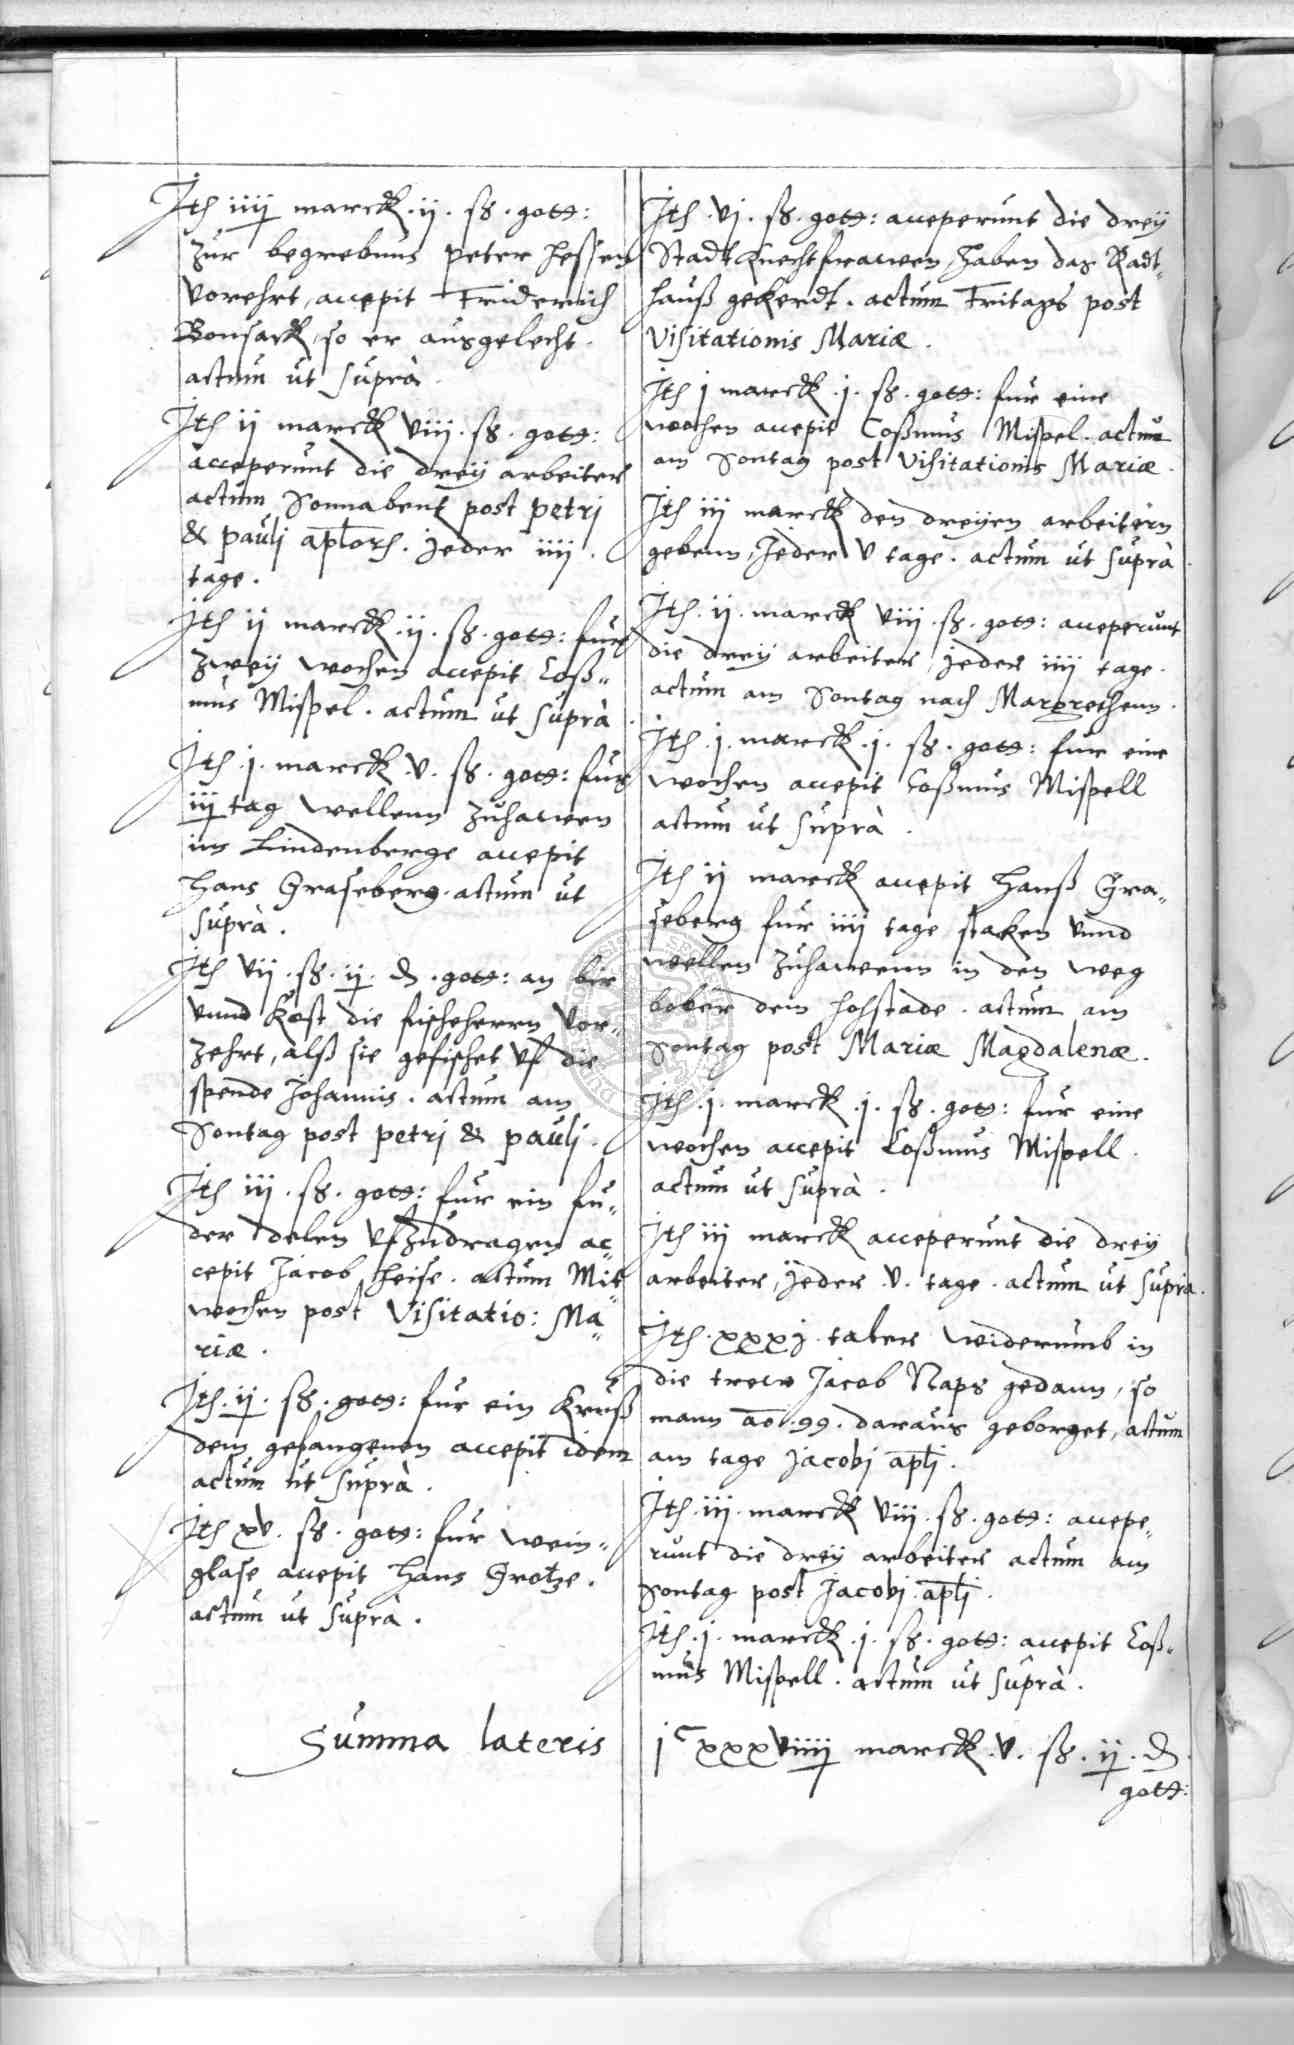 Ith iiij marck .ij. ß. gott:
zur begrebnus Peter Hessen
vorehrt, accepit Friderich
Bonsack, so er ausgelecht.
actum ut suprà.
Ith ij marck viij. ß. gott:
acceperunt die dreij arbeiter
actum Sonnabent post Petri
& Pauli aplorh. jeder iiij.
tage.
Ith ij marck .ij. ß. gott: fur
zweij wochen accepit Coß„
mus Mispel. actum ut suprà.
Ith .j. marck .v. ß. gott: fur
iij tag wellenn zuhawen
im Lindenberge accepit
Hans Graseberg. actum ut
suprà.
Ith vij. ß. ij. ₰. gott: an bir
unnd Kost die fischeherrn vor„
zehrt, alß sie gefischet uf die
spende Johannis. actum am
Sontag post Petri & Pauli.
Ith iij. ß. gott: fur ein fu„
der delen ufzudragen ac„
cepit Jacob Heise. actum Mit
wochen post Visitatio: Ma„
riæ.
Ith .ij. ß. gott: fur ein Kruß
dem gefangenen accepit idem
actum ut suprà.
Ith xv. ß. gott: fur wein„
glase accepit Hans Grotze.
actum ut suprà.
Summa lateris
Ith .vj. ß. gott: acceperunt die dreij
Stadtknechtfrawen, haben das Radt„
hauß gekerdt. actum Fritags post
Visitationis Mariæ.
Ith j marck .j. ß. gott: fur eine
wochen accepit Coßmus Mispel. actum
am Sontag post Visitationis Mariæ.
Ith iij marck den dreijen arbeitern
gebenn, Jeder v tage. actum ut suprà.
Ith .ij. marck viij. ß. gott: acceperunt
die dreij arbeiter, jeder iiij tage.
actum am Sontag nach Margrethenn.
Ith .j. marck .j. ß. gott: fur eine
wochen accepit Coßmus Mispell
actum ut suprà.
Ith ij marck accepit Hanß Gra„
seberg fur iiij tage staken unnd
wellen zuhawenn in den weg
bober dem holstade. actum am
Sontag post Mariæ Magdalenæ.
Ith .j. marck .j. ß. gott: fur eine
wochen accepit Coßmus Mispell.
actum ut suprà.
Ith iij marck acceperunt die dreij
arbeiter, Jeder .v. tage. actum ut suprà.
Ith .xxxj. taler widerumb in
die trew Jacob Naps gedann, so
mann ao .99. daraus geborget, actum
am tage Jacobi apli.
Ith .iij. marck viij. ß. gott: accepe„
runt die dreij arbeiter actum am
Sontag post Jacobi apli.
Ith .j. marck .j. ß. gott: accepit Coß„
mus Mispell. actum ut suprà.
jc xxxviiij marck .v. ß. ij. ₰.
gott: